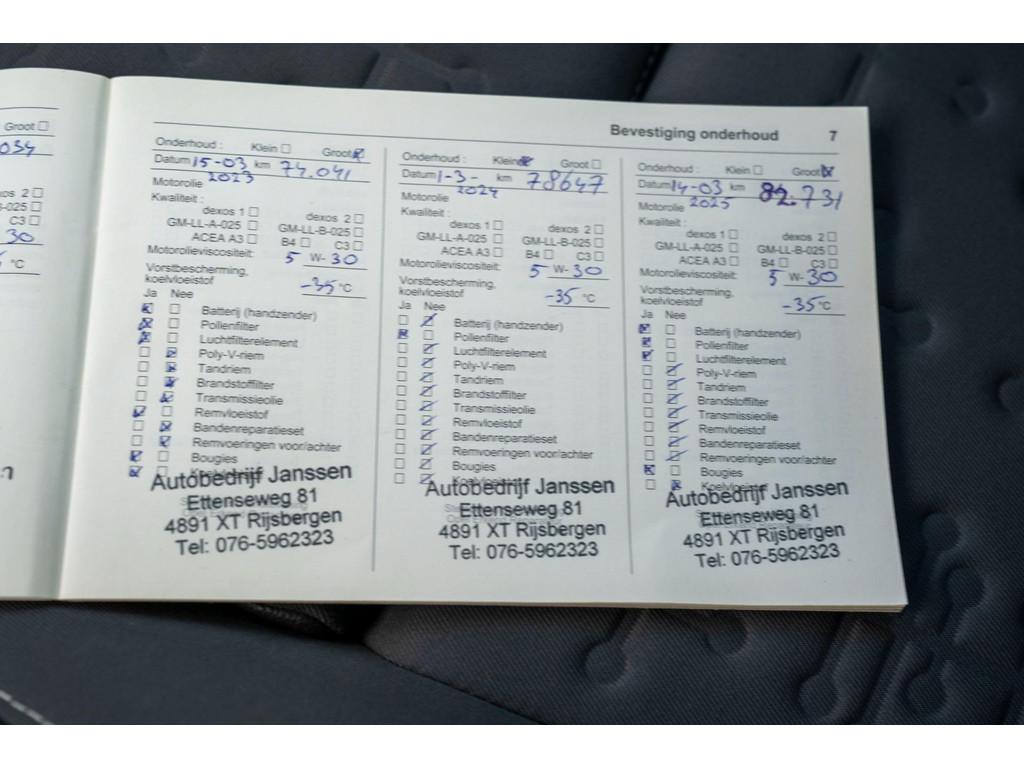 Groot
034
Bevestiging onderhoud 7
Onderhoud : Klein Groot
Datum 15-03 km 74.041
2023
Motorolie
Kwaliteit :
dexos 1 dexos 2
GM-LL-A-025 GM-LL-B-025
ACEA A3 B4 C3
Motorolieviscositeit: 5 W-30
Vorstbescherming,
koelvloeistof -35 °C
Ja Nee
Batterij (handzender)
Pollenfilter
Luchtfilterelement
Poly-V-riem
Tandriem
Brandstoffilter
Transmissieolie
Remvloeistof
Bandenreparatieset
Remvoeringen voor/achter
Bougies
Autobedrijf Janssen
Ettenseweg 81
4891 XT Rijsbergen
Tel: 076-5962323
Onderhoud : Klein Groot
Datum 1-3- km 78647
2024
Motorolie
Kwaliteit :
dexos 1 dexos 2
GM-LL-A-025 GM-LL-B-025
ACEA A3 B4 C3
Motorolieviscositeit: 5 W-30
Vorstbescherming,
koelvloeistof -35 °C
Ja Nee
Batterij (handzender)
Pollenfilter
Luchtfilterelement
Poly-V-riem
Tandriem
Brandstoffilter
Transmissieolie
Remvloeistof
Bandenreparatieset
Remvoeringen voor/achter
Bougies
Autobedrijf Janssen
Ettenseweg 81
4891 XT Rijsbergen
Tel: 076-5962323
Onderhoud : Klein Groot
Datum 14-03 km 82.731
Motorolie 2025
Kwaliteit :
dexos 1 dexos 2
GM-LL-A-025 GM-LL-B-025
ACEA A3 B4 C3
Motorolieviscositeit: 5 W-30
Vorstbescherming,
koelvloeistof -35 °C
Ja Nee
Batterij (handzender)
Pollenfilter
Luchtfilterelement
Poly-V-riem
Tandriem
Brandstoffilter
Transmissieolie
Remvloeistof
Bandenreparatieset
Remvoeringen voor/achter
Bougies
Koelvloeistof
Autobedrijf Janssen
Ettenseweg 81
4891 XT Rijsbergen
Tel: 076-5962323